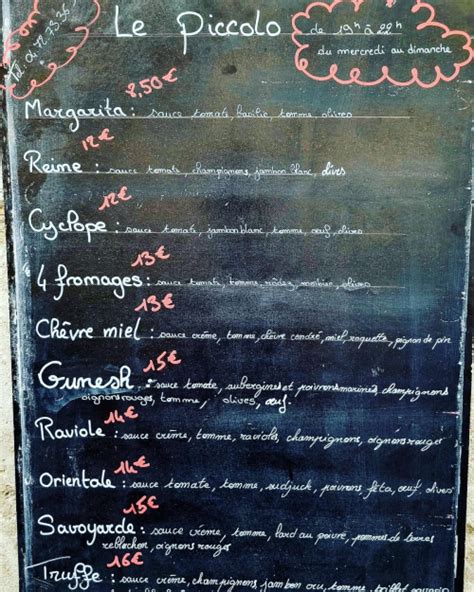 Le Piccolo
de 19h à 22h
du mercredi au dimanche
Tél:
Margarita: sauce tomate, basilic, tomme, olives
12€
Reine : sauce tomate, champignons, jambon blanc, olives
12€
Cyclope : sauce tomate, jambon blanc, tomme, œuf, olives
13€
4 fromages: sauce tomate, tomme, olives
13€
Chèvre miel : sauce crème, tomme, chèvre cendré, miel, roquette, pignon de pin
15€
Gunesh : sauce tomate, aubergines et poivrons marinés, champignons
oignons rouges, tomme, olives, œuf.
14€
Raviole : sauce crème, tomme, ravioles, champignons, oignons rouges
14€
Orientale : sauce tomate, tomme, sudjuck, poivrons, féta, œuf, olives
15€
Savoyarde : sauce crème, tomme, lard au poivre, pommes de terres
reblochon, oignons rouges
16€
Truffe : sauce crème, champignons, jambon cru, tomme,